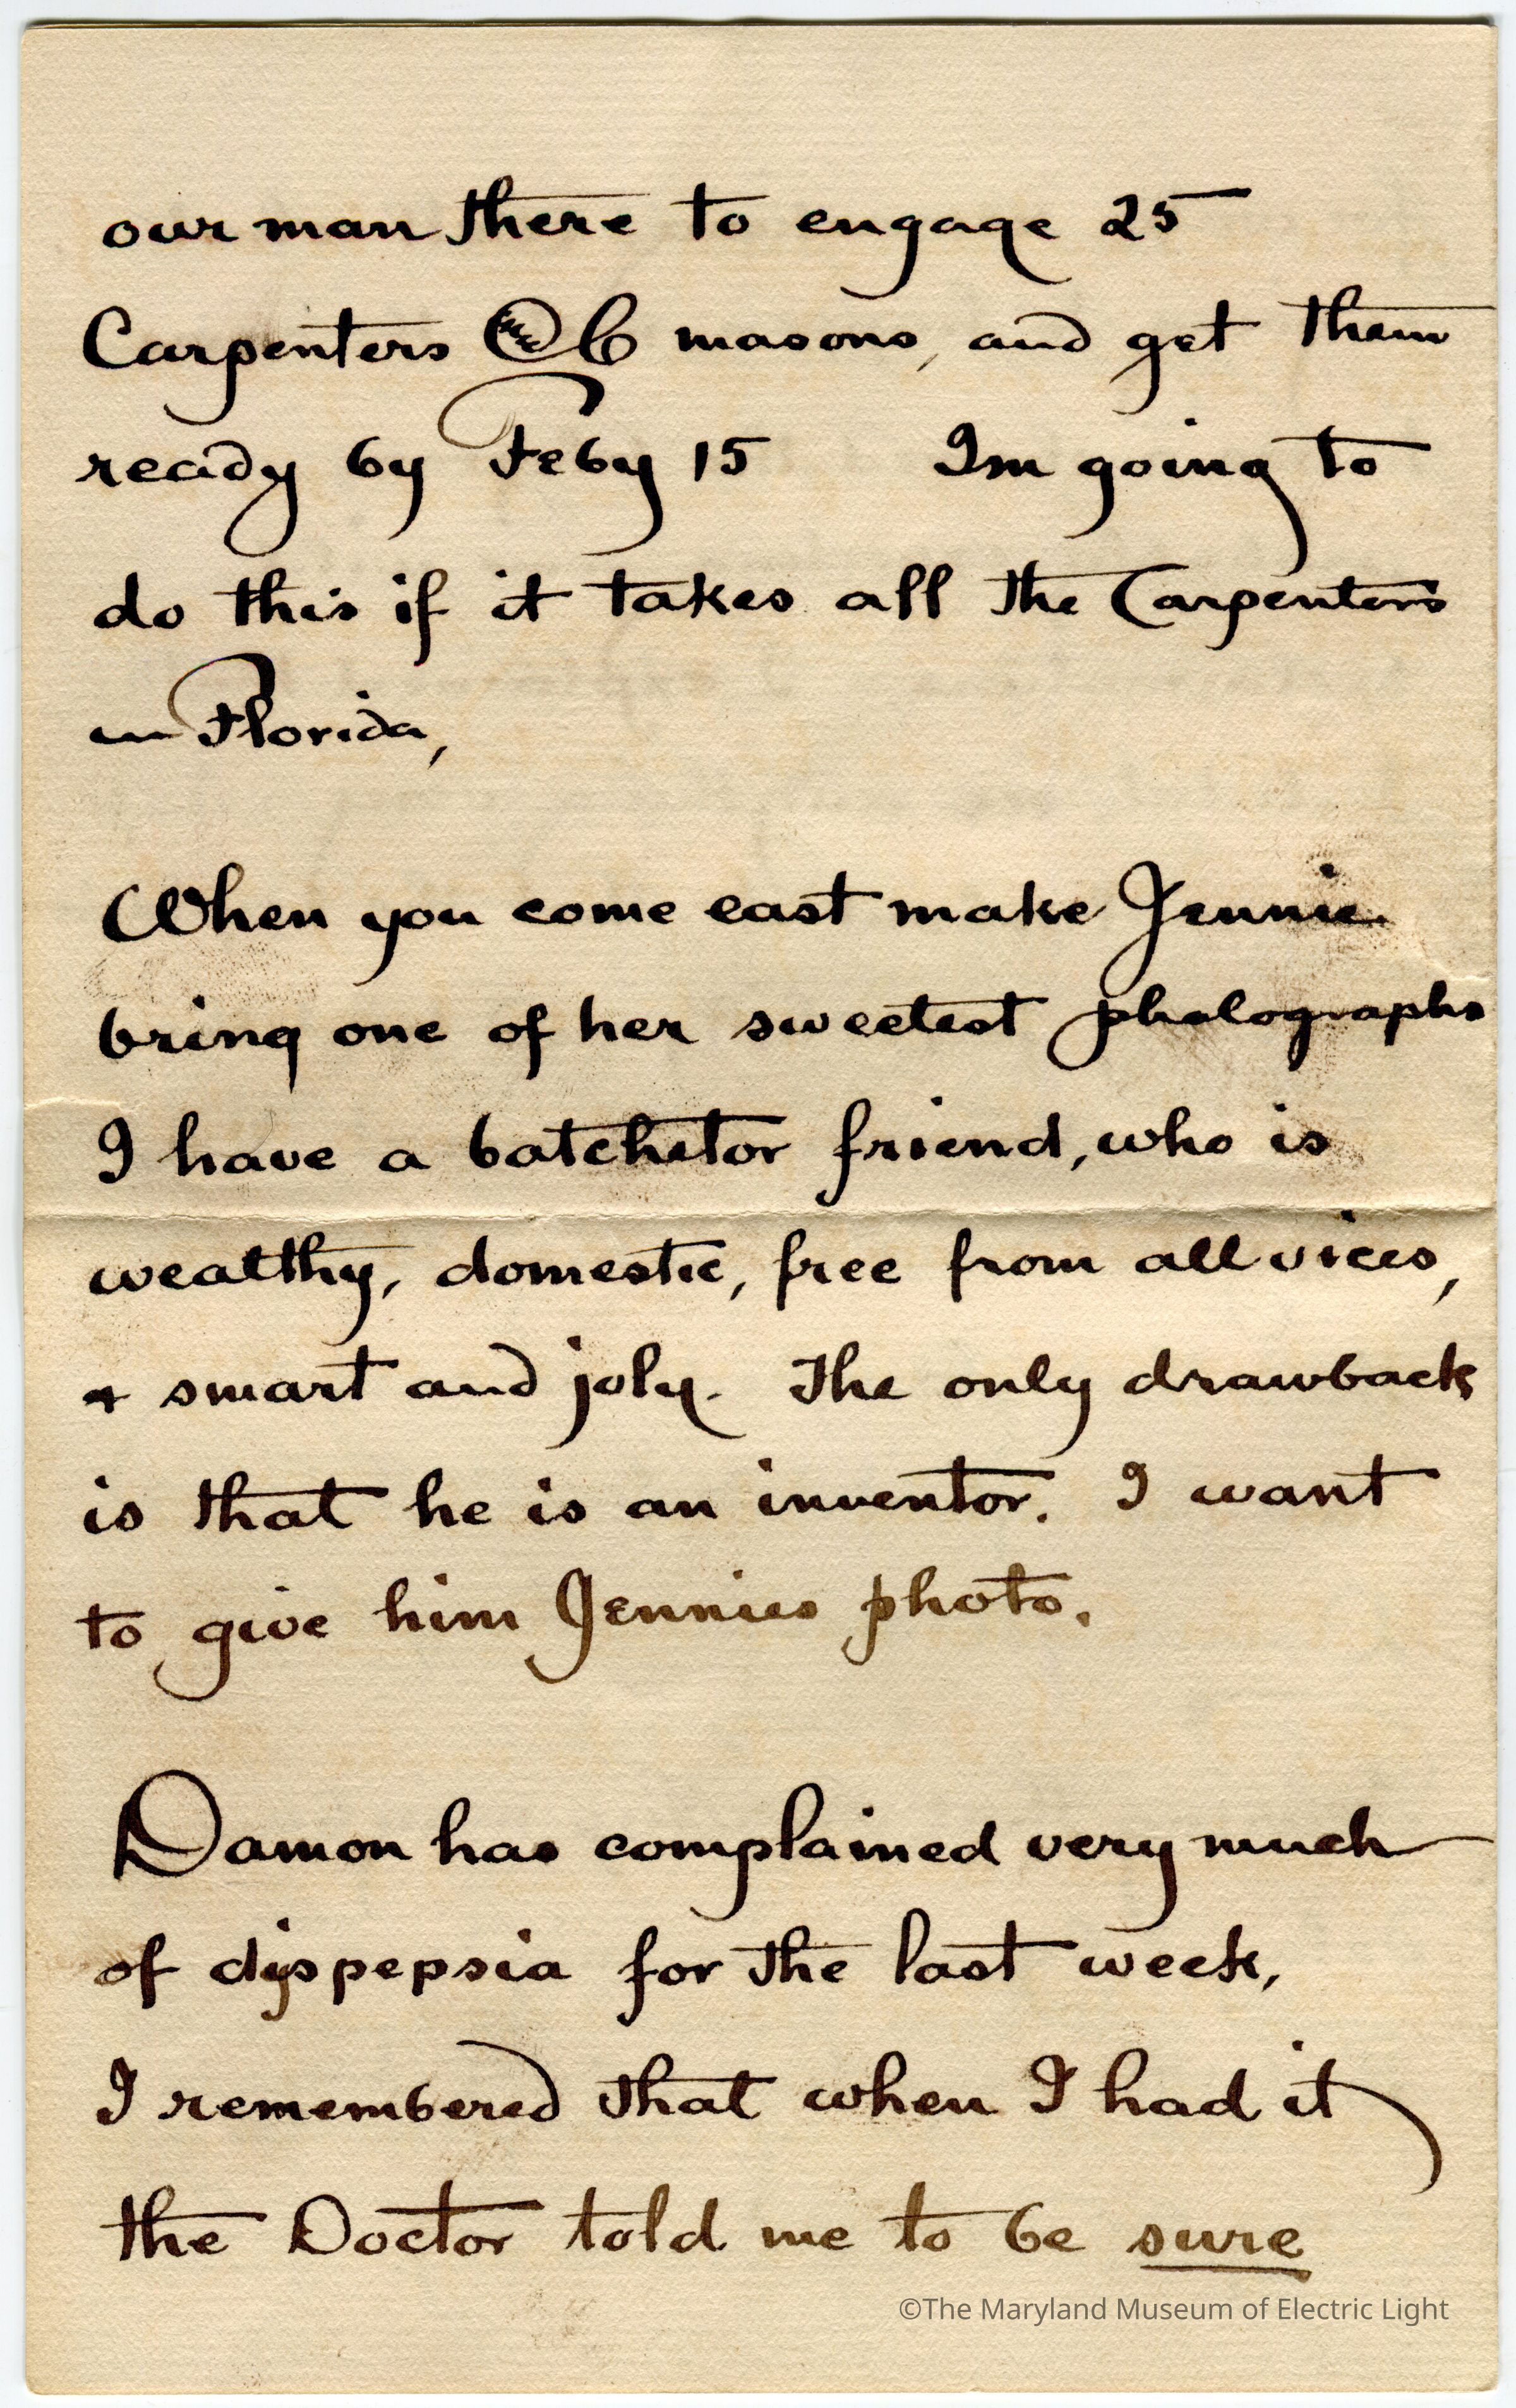 our man there to engage 25
Carpenters & 6 masons, and get them
ready by Feby 15 Im going to
do this if it takes all the Carpenters
in Florida,
When you come east make Jennie
bring one of her sweetest photographs
I have a batchelor friend, who is
wealthy, domestic, free from all vices,
+ smart and joly. The only drawback
is that he is an inventor. I want
to give him Jennies photo.
Damon has complained very much
of dyspepsia for the last week,
I remembered that when I had it
the Doctor told me to be sure
©The Maryland Museum of Electric Light